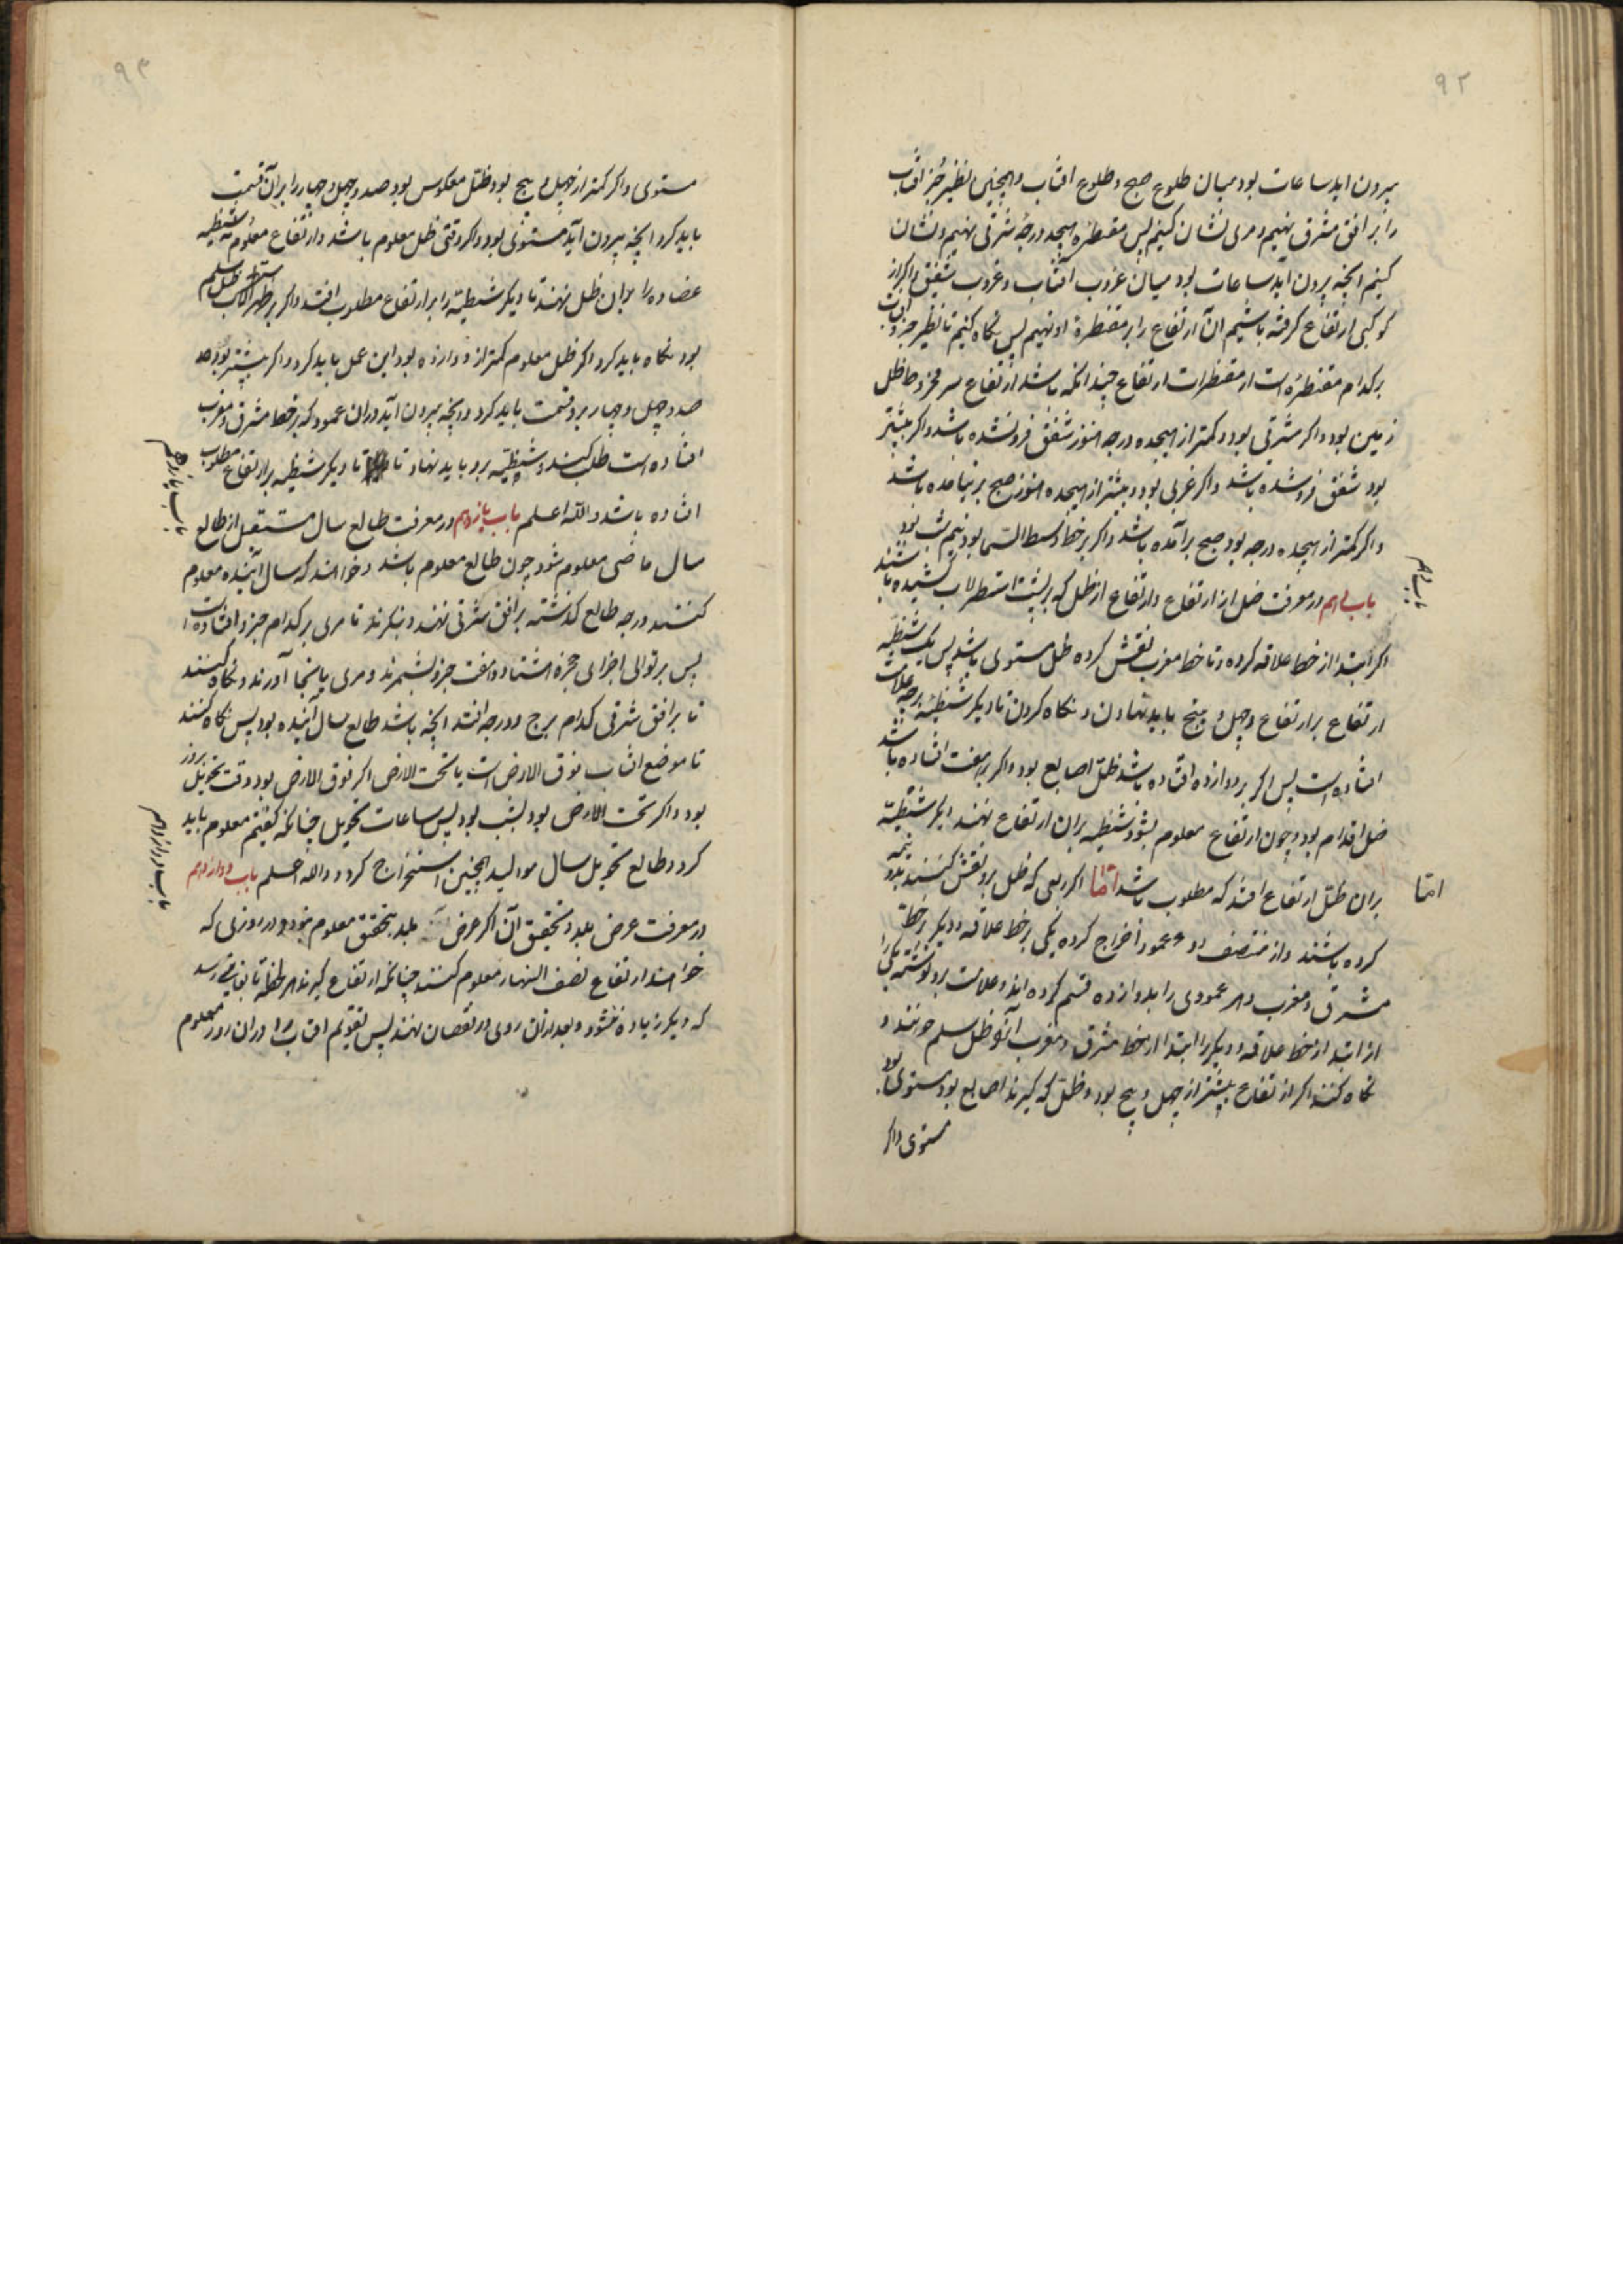 ۹۲
بیرون اید ساعات بود میان طلوع صبح و طلوع افتاب و همچنین نظیر جزء افتاب
را بر افق مشرق نهیم و مری نشان کنیم پس مقنطرهٔ هیجده درجهٔ شرقی نهیم و نشان
کنیم انچه بیرون اید ساعات بود میان غروب افتاب و غروب شفق و اکر از
کوکبی ارتفاع کرفته باشیم ان ارتفاع را بر مقنطرهٔ او نهیم پس نکاه کنیم تا نظیر جزو افتاب
بر کدام مقنطره است از مقنطرات ارتفاع چندانکه باشد ارتفاع سر مخروط ظل
زمین بود و اکر شرقی بود و کمتر از هیجده درجه هنوز شفق فرو نشده باشد و اکر بیشتر
بود شفق فرو شده باشد و اکر غربی بود و بیشتر از هیجده هنوز صبح بر نیامده باشد
و اکر کمتر از هیجده درجه بود صبح برآمده باشد و اکر بر خط وسط السما بود نیم شب بود
باب دهم در معرفت ظل از ارتفاع و ارتفاع از ظل که بر پشت اسطرلاب کشیده باشند
باب دهم
اکر ابتدا از خط علاقه کرده و تا خط مغرب نقش کرده ظل مستوی باشد پس یک شظیه
ارتفاع بر ارتفاع و چهل و پنج باید نهادن و نکاه کردن تا دیکر شظیه بر چه علامت
افتاده است پس اکر بر دوازده افتاده باشد ظل اصابع بود و اکر بر هفت افتاده باشد
ظل اقدام بود و چون ارتفاع معلوم بشود شظیه بران ارتفاع نهند دیکر شظیه
بران ظل ارتفاع افتد که مطلوب باشد امّا اکر ربعی که ظل برو نقش کنند بدو نیمه
امّا
کرده باشند و از منتصف دو عمود اخراج کرده یکی بر خط علاقه و دیکر بر خط
مشرق و مغرب و هر عمودی را بدوازده قسم کرده اند و علامت برو نوشته یکی را
از ابتدا از خط علاقه و دیکر را ابتدا از خط مشرق و مغرب آنرا ظل سلم خوانند و
نکاه کنند اکر ارتفاع بیشتر از چهل و پنج بود و ظل که کیرند اصابع بود مستوی بود
مستوی و اکر
۹۳
مستوی و اکر کمتر از چهل و پنج بود ظل معکوس بود صد و چهل و چهار را بر آن قسمت
باید کرد انچه بیرون آید مستوی بود و اکر وقتی ظل معلوم باشد و ارتفاع معلوم نه شظیه
عضاده را بران ظل نهند تا دیکر شظیه را بر ارتفاع مطلوب افتد و اکر بر ظهر اسطرلاب ظل سلم
بود نکاه باید کرد اکر ظل معلوم کمتر از دوازده بود این عمل باید کرد و اکر بیشتر بود
صد و چهل و چهار برو قسمت باید کرد و انچه بیرون آید دران عمود که بر خط مشرق و مغرب
افتاده است طلب کنند و شظیه برو باید نهاد تا دیکر شظیه بر ارتفاع مطلوب
افتاده باشد و اللّه اعلم باب یازدهم در معرفت طالع سال مستقبل از طالع
باب یازدهم
سال ماضی معلوم شود چون طالع معلوم باشد و خواهند که سال آینده معلوم
کنند درجه طالع کذشته بر افق شرقی نهند و بنکرند تا مری بر کدام جزو افتاده است
پس بر توالی اجزای حجره هشتاد و هفت جزو بشمرند و مری بانجا آورند و نکاه کنند
تا بر افق شرقی کدام برج و درجه افتد انچه باشد طالع سال آینده بود پس نکاه کنند
تا موضع افتاب فوق الارض است یا تحت الارض اکر فوق الارض بود وقت تحویل بروز
بود و اکر تحت الارض بود بشب بود پس ساعات تحویل چنانکه کفتیم معلوم باید
کرد و طالع تحویل سال موالید همچنین استخراج کرد و اللّه اعلم باب دوازدهم
باب دوازدهم
در معرفت عرض بلد و تحقیق آن اکر عرض بلد بتحقیق معلوم نبود و در روزی که
خواهند ارتفاع نصف النهار معلوم کنند چنانکه ارتفاع کیرند هر لحظه تا بغایتی رسد
که دیکر زیاده نشود و بعد ازان روی در نقصان نهند پس تقویم افتاب را دران روز معلوم